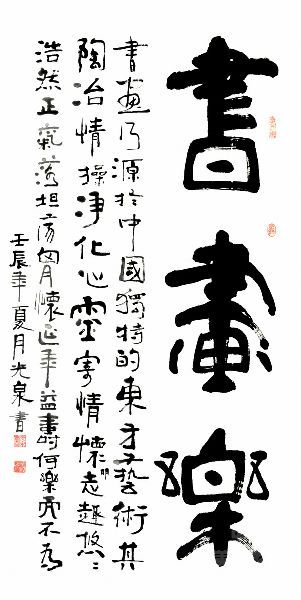 書畫樂
書畫乃源於中國獨特的東方藝術其
陶冶情操净化心靈寄情懷趣悠〻
浩然正氣坦荡胸懷延年益壽何樂而不為
壬辰年夏月光泉書